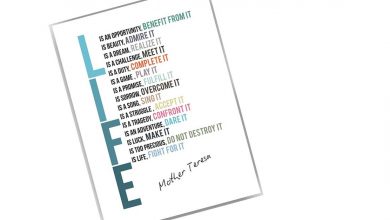 LIFE
IS AN OPPORTUNITY, BENEFIT FROM IT
IS BEAUTY, ADMIRE IT
IS A DREAM, REALIZE IT
IS A CHALLENGE, MEET IT
IS A DUTY, COMPLETE IT
IS A GAME, PLAY IT
IS A PROMISE, FULFILL IT
IS SORROW, OVERCOME IT
IS A SONG, SING IT
IS A STRUGGLE, ACCEPT IT
IS A TRAGEDY, CONFRONT IT
IS AN ADVENTURE, DARE IT
IS LUCK, MAKE IT
IS TOO PRECIOUS, DO NOT DESTROY IT
IS LIFE, FIGHT FOR IT
Mother Teresa